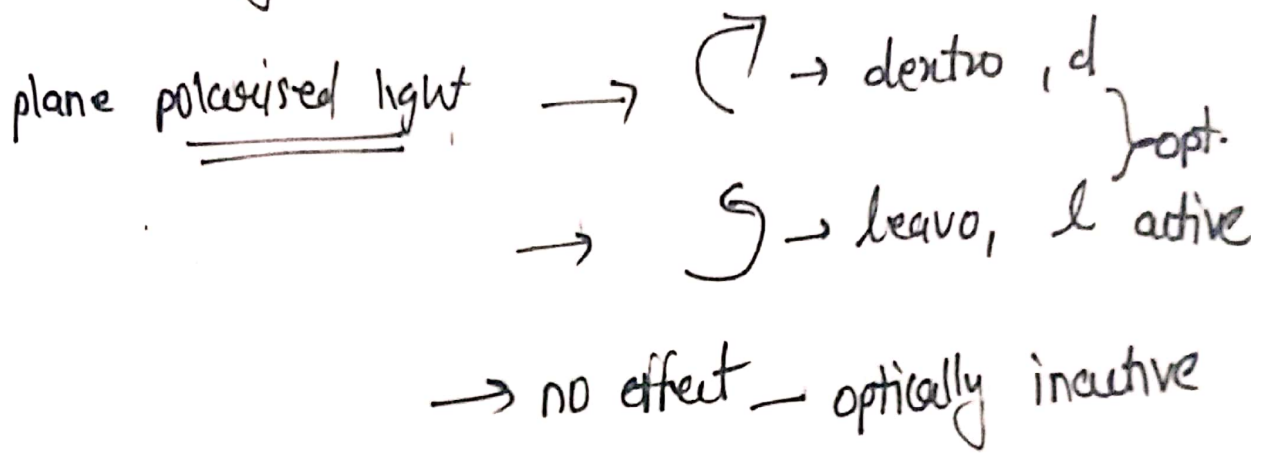 plane polarised light → → dextro, d
} opt.
→ → leavo, l active
→ no effect - optically inactive